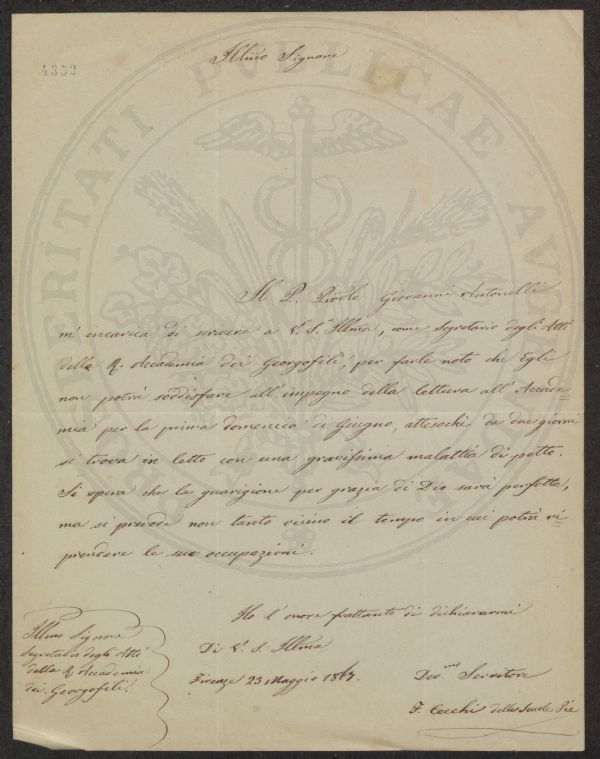 Illmo Signore
4352
Il P. Prov.le Giovanni Antonelli
m'incarica di scrivere a V.S. Illma, come Segretario degli Atti
della R. Accademia dei Georgofili, per farle noto che Egli
non potrà soddisfare all'impegno della lettura all'Accade=
mia per la prima domenica di Giugno, attesochè da due giorni
si trova in letto con una gravissima malattia di petto.
Si spera che la guarigione per grazia di Dio sarà perfetta,
ma si prevede non tanto vicino il tempo in cui potrà ri=
prendere le sue occupazioni.
Ho l'onore frattanto di dichiararmi
Di V.S. Illma
Firenze 23 Maggio
Dev.mo Servitore
F. Cecchi delle Scuole Pie
Illmo Signore
Segretario degli Atti
della R. Accademia
dei Georgofili.
PUBLICAE